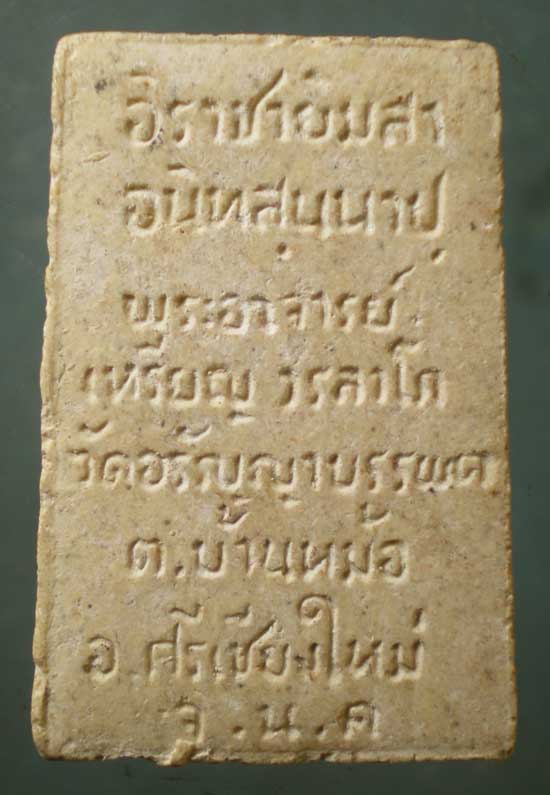 อิราชายํมสา
อนิทสฺนนาป
พระอาจารย์
เหรียญ วรลาโภ
วัดอรัญญาบรรพต
ต.บ้านหม้อ
อ.ศรีเชียงใหม่
จ.น.ค